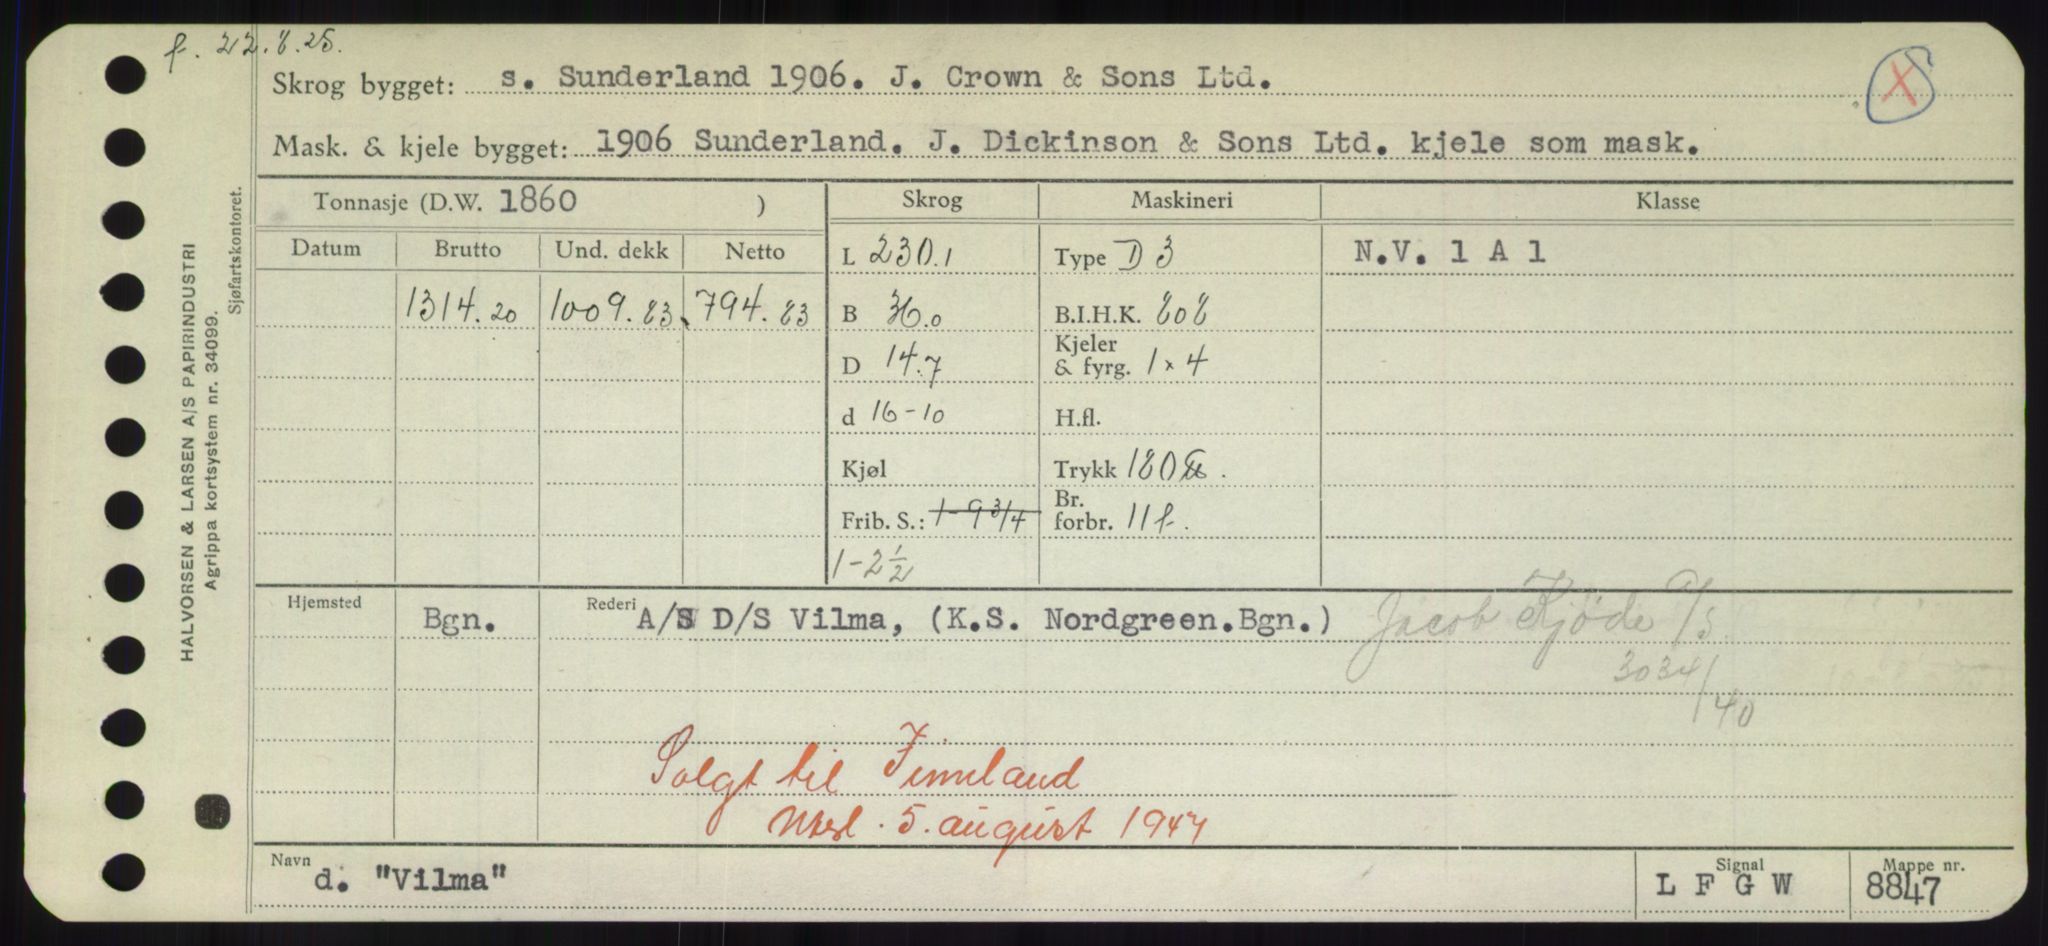 f. 22.8.25.
Skrog bygget: s. Sunderland 1906. J. Crown & Sons Ltd.
X
Mask. & kjele bygget: 1906 Sunderland. J. Dickinson & Sons Ltd. kjele som mask.
Tonnasje (D.W. 1860 )
Skrog Maskineri Klasse
Datum Brutto Und. dekk Netto
L 230.1 Type D 3 N.V. 1 A 1
1314.20 1009.83 794.83 B 36.0 B.I.H.K. 808
D 14.7 Kjeler & fyrg. 1 x 4
d 16-10 H.fl.
Kjøl Trykk 180
Frib. S.: 1-9 3/4 Br. forbr. 11 f.
1-2 1/2
Hjemsted Bgn. Rederi A/S D/S Vilma, (K.S. Nordgreen.Bgn.) Jacob Kjöde A/S
3034/40
Solgt til Finnland
Mksl. 5. august 1947
Navn d. "Vilma"
Signal L F G W
Mappe nr. 8847
HALVORSEN & LARSEN A/S PAPIRINDUSTRI
Agrippa kortsystem nr. 34099.
Sjøfartskontoret.